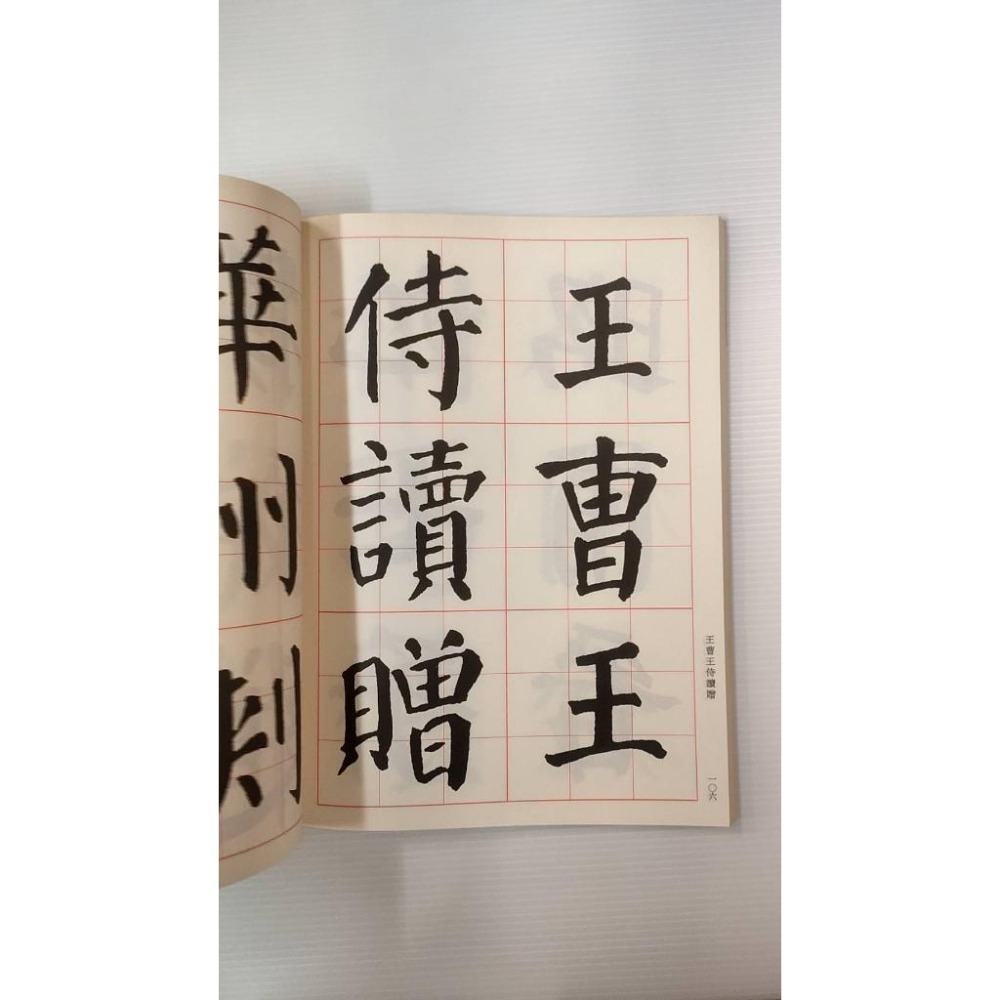 王曹王
侍讀贈
王曹王侍讀贈
一〇六
華州刺